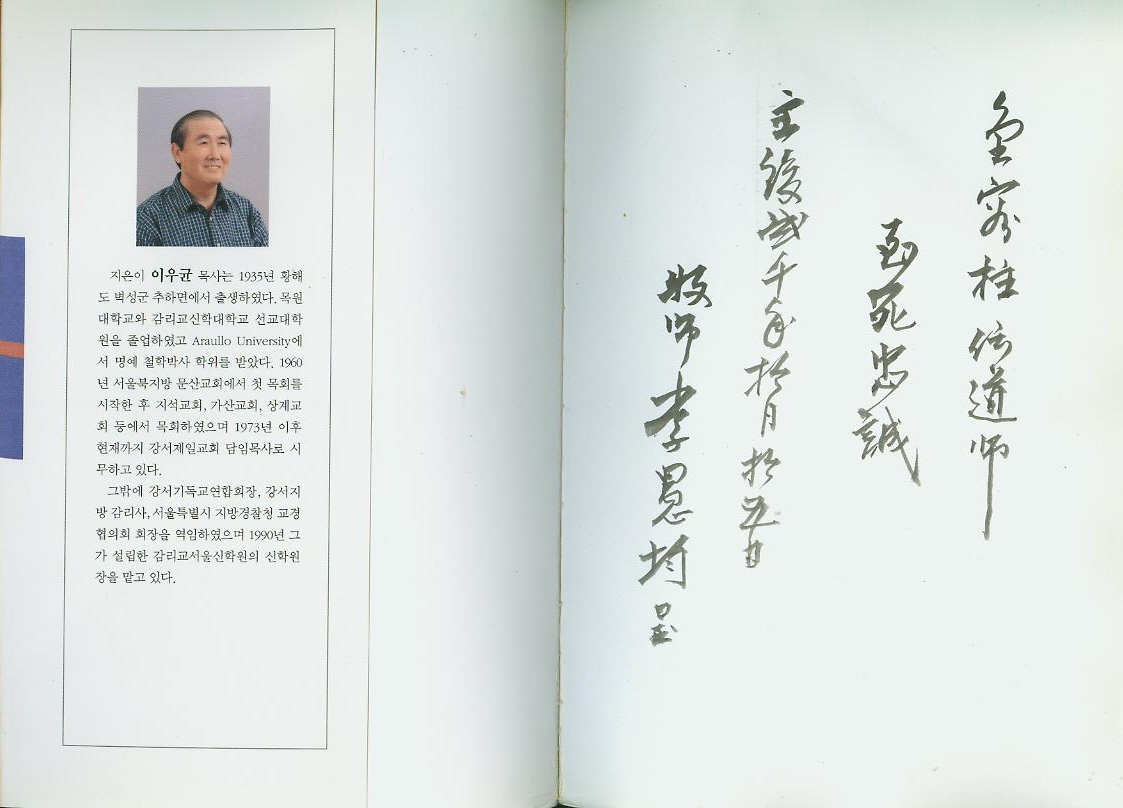 지은이 이우균 목사는 1935년 황해
도 벽성군 추하면에서 출생하였다. 목원
대학교와 감리교신학대학교 선교대학
원을 졸업하였고 Araullo University에
서 명예 철학박사 학위를 받았다. 1960
년 서울북지방 문산교회에서 첫 목회를
시작한 후 지석교회, 가산교회, 상계교
회 등에서 목회하였으며 1973년 이후
현재까지 강서제일교회 담임목사로 시
무하고 있다.
그밖에 강서기독교연합회장, 강서지
방 감리사, 서울특별시 지방경찰청 교경
협의회 회장을 역임하였으며 1990년 그
가 설립한 감리교서울신학원의 신학원
장을 맡고 있다.
金容柱 傳道師
至死忠誠
主後貳千年拾月拾五日
牧師 李愚均 呈